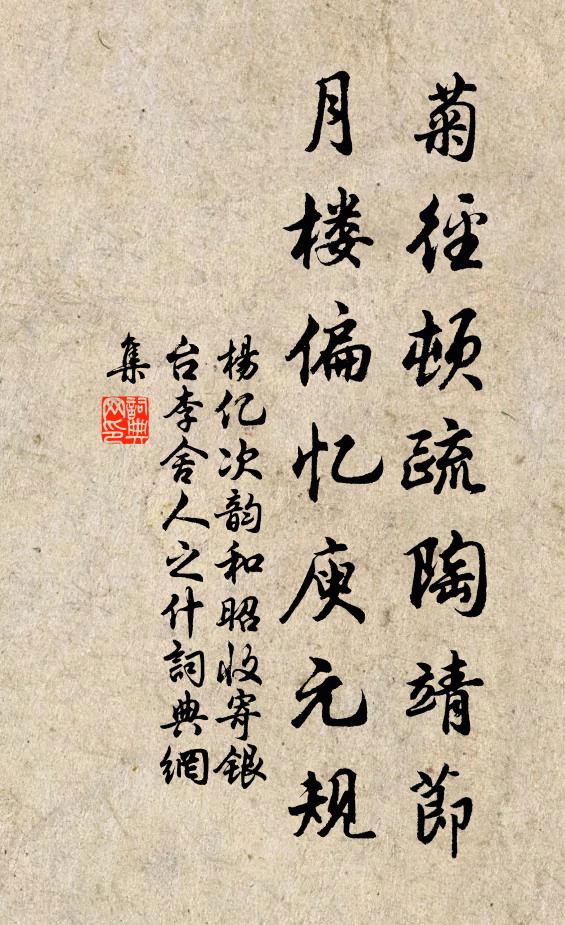 菊徑頓疏陶靖節
月楼偏忆庾元規
楊亿次韵和昭收寄銀
台李舍人之什詞典網
集
詞典
网印